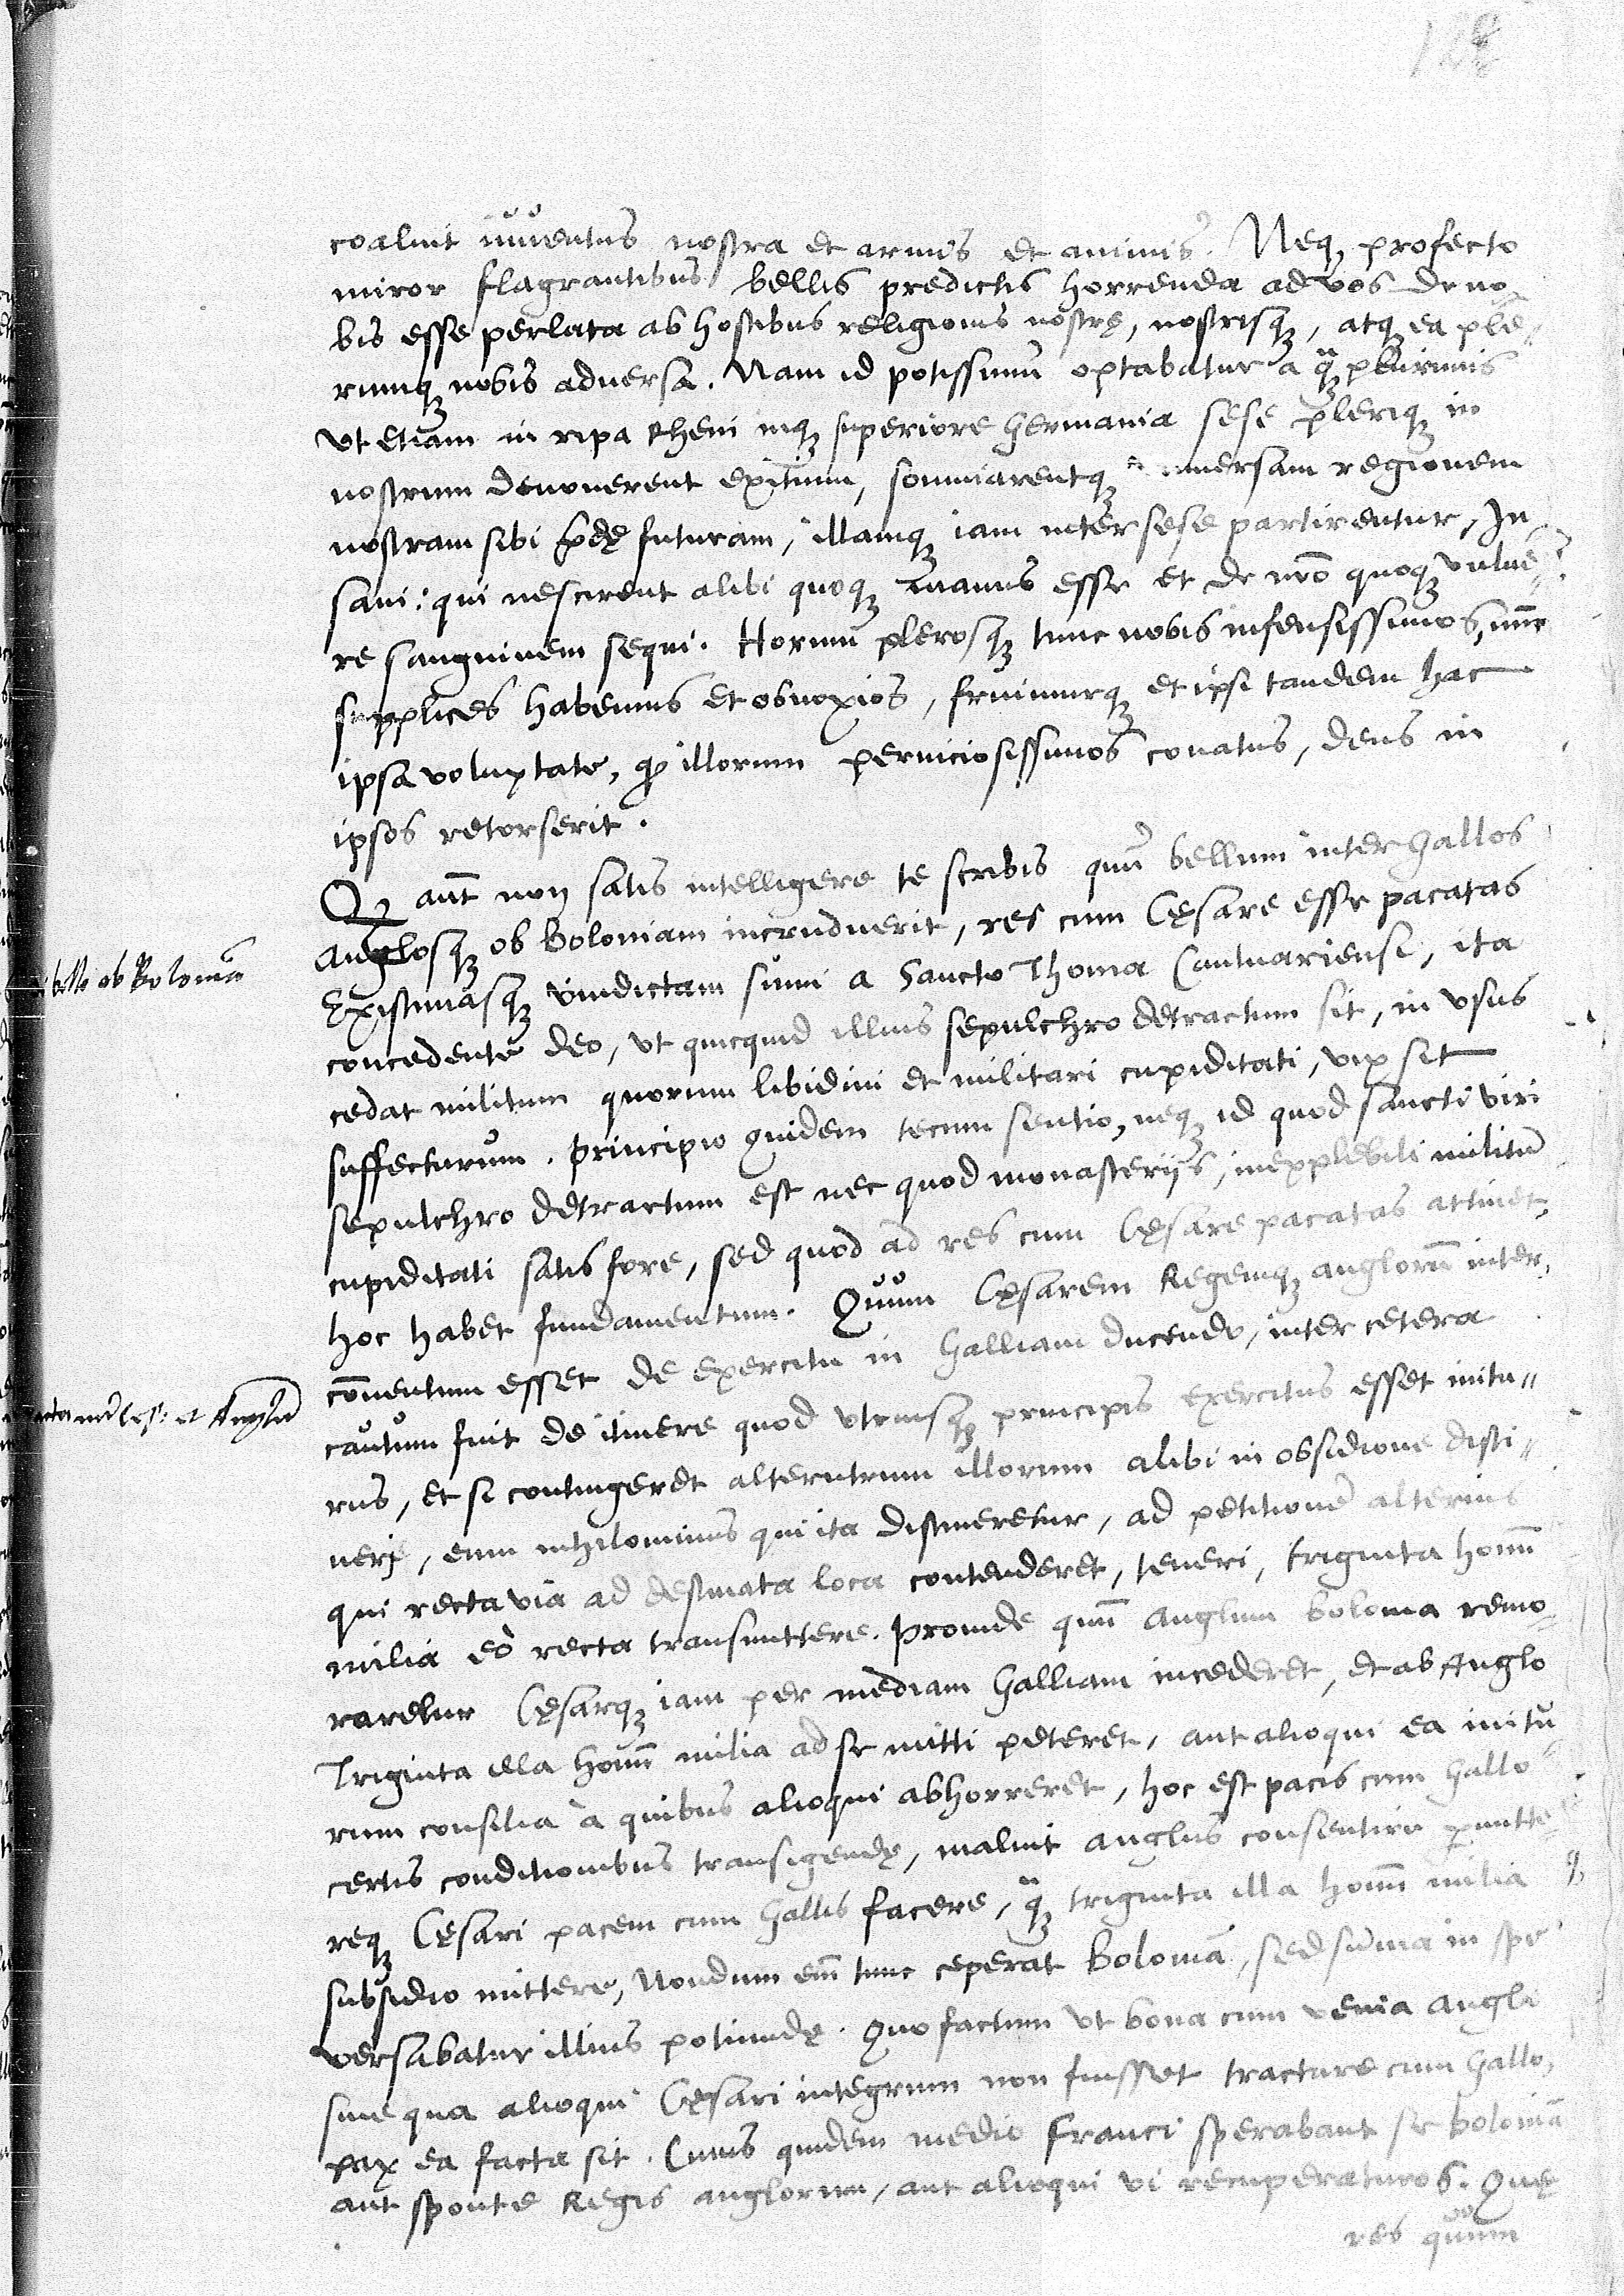 128
coaluit iuuentus nostra et armis et animis. Neq profecto
miror flagrantibus bellis predictis horrenda ad vos de no-
bis esse perlata ab hostibus religionis nostrę, nostrisq, atq ea ple-
rumq nobis aduersa. Nam id potissimū optabatur a q̃ plurimis
vt etiam in ripa Rheni inq superiore Germania sese pleriq in
nostrum deuouerent exitium, somniarentq vniuersam regionem
nostram sibi prędę futuram, illamq iam inter sese partirentur, In
sani: qui nescirent alibi quoq manus esse et de nr̃o quoq vulne-
re sanguinem sequi. Horum plerosq tunc nobis infensissimos, nunc
supplices habemus et obnoxios, fruimurq et ipsi tandem hac
ipsa voluptate, q illorum perniciosissimos conatus, deus in
ipsos retorserit.
Q aut̄ non satis intelligere te scribis quū bellum inter Gallos
Anglosq ob Boloniam incruduerit, res cum Cęsare esse pacatas
Existimasq vindictam sumi a Sancto Thoma Cantuariensi, ita
concedente deo, vt quicquid illius sepulchro detractum sit, in vsus
cedat militum quorum libidini et militari cupiditati, vix sit
suffecturum. Principio quidem tecum sentio, neq id quod sancti viri
sepulchro detractum est nec quod monasterijs, inexplebili militū
cupiditati satis fore, sed quod ad res cum Cęsare pacatas attinet,
hoc habet fundamentum. Quum Cęsarem Regemq anglorū inter,
cōuentum esset de exercitu in Galliam ducendo, inter cetera
cautum fuit de itinere quod vtriusq principis exercitus esset initu-
rus, et si contingeret alterutrum illorum alibi in obsidione disti-
neri, eum nihilominus qui ita distineretur, ad petitionē alterius
qui recta via ad destinata loca contenderet, teneri, triginta homī
milia eò recta transmittere. Proinde quū Anglum Bolonia remo-
raretur Cęsarq iam per mediam Galliam incederet, et ab Anglo
Triginta illa homī milia ad se mitti peteret, aut alioqui ea initu
rum consilia à quibus alioqui abhorreret, hoc est pacis cum Gallo
certis conditionibus transigendę, maluit Anglus consentire permitte-
req Cęsari pacem cum Gallis facere, q̃ triginta illa homī milia
subsidio mittere, Nondum em̄ tunc ceperat Boloniā, sed summa in spe
versabatur illius potiundę. Quo factum vt bona cum venia Angli
sine qua alioqui Cęsari integrum non fuisset tractare cum Gallo,
pax ea facta sit. Cuius quidem medio Franci sperabant se Boloniā
aut sponte Regis anglorum, aut alioqui vi recuperaturos. Quę
res quum
bello ob Boloniā
inter Cęs: et Anglū